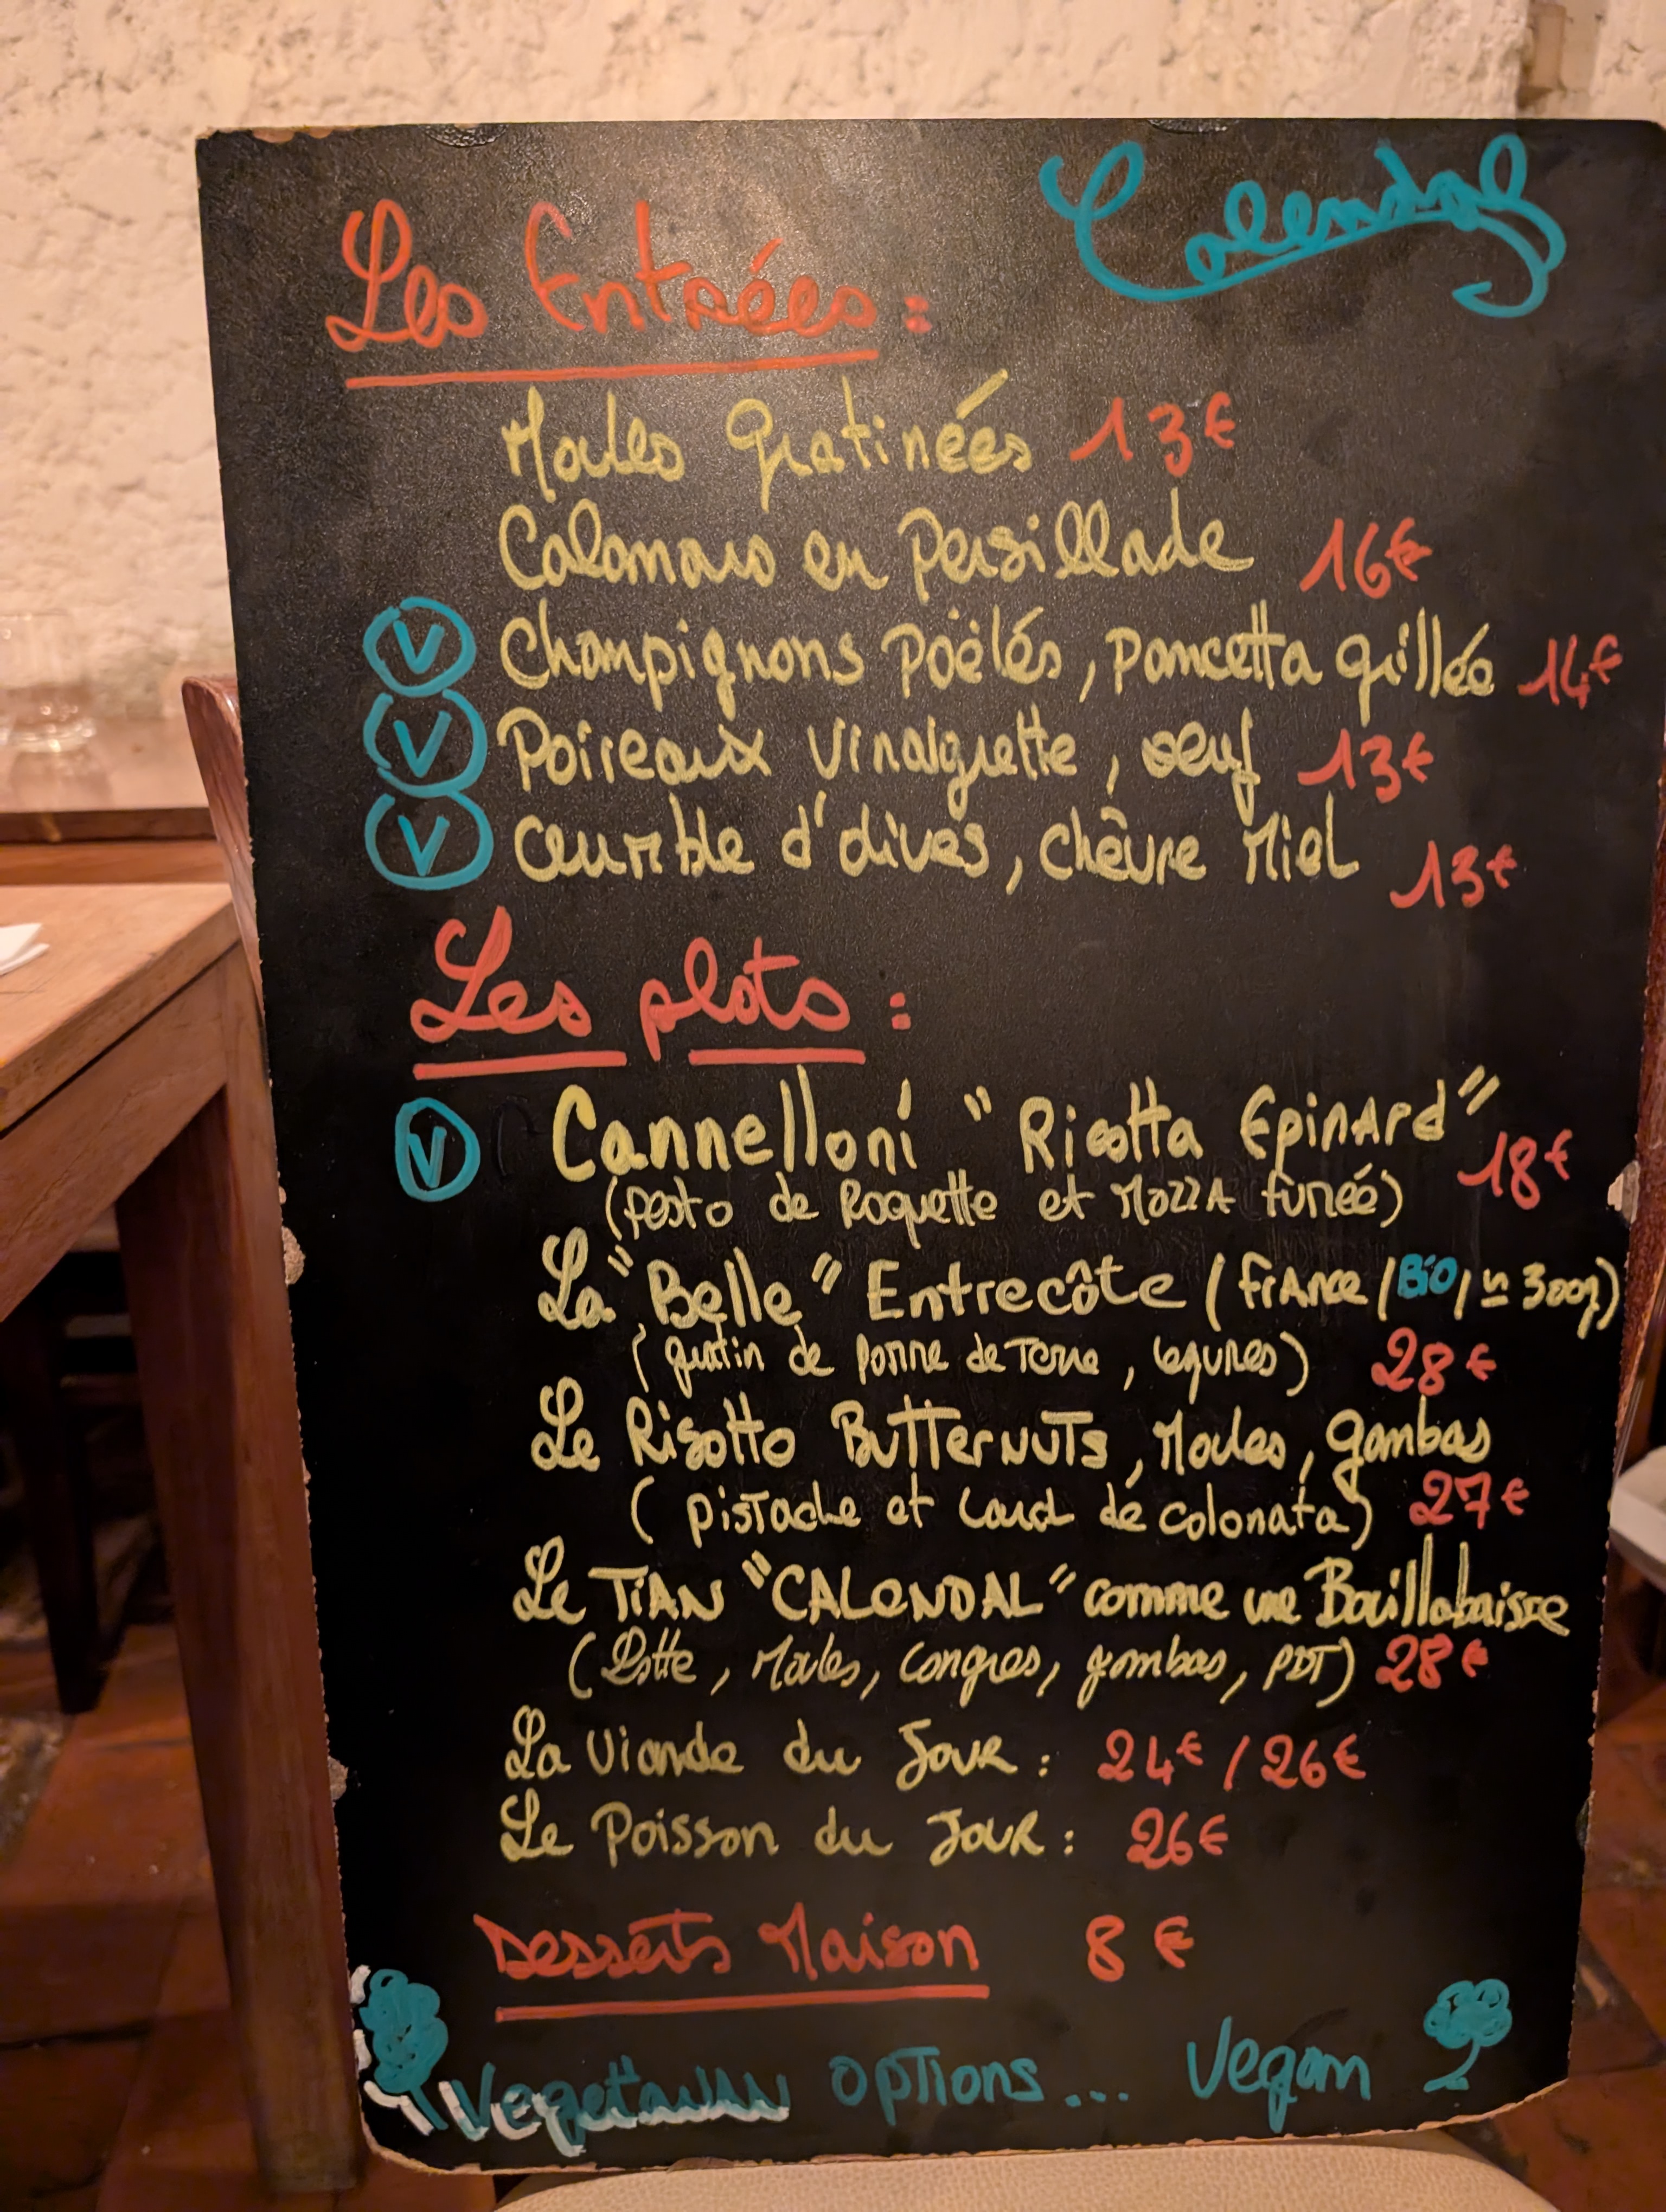 Calendal
Les Entrées :
Moules gratinées 13€
Calamars en Persillade 16€
V Champignons Poëlés, pancetta grillée 14€
V Poireaux vinaigrette, oeuf 13€
V Crumble d'olives, chèvre Miel 13€
Les plats :
V Cannelloni "Ricotta Epinard" 18€
(Pesto de Roquette et Mozza fumée)
La "Belle" Entrecôte (France / Bio / ≃ 300g)
(gratin de Pomme de Terre, légumes) 28€
Le Risotto Butternuts, Moules, gambas
(pistache et Lard de colonata) 27€
Le TiAN "CALENDAL" comme une Bouillabaisse
(Lotte, Moules, Congres, gambas, PDT) 28€
La Viande du Jour : 24€ / 26€
Le Poisson du Jour : 26€
Desserts Maison 8€
Vegetarian options... Vegan